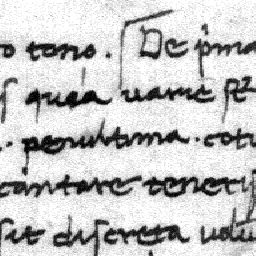 o tono. De p̄ma
quaa uarie
. penultima. cot
cantare teneris
sit discreta uolu